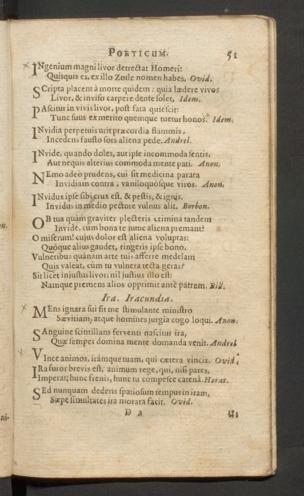 PORTICUM. 51
INgenium magni livor detrectat Homeri:
Quisquis es, ex illo Zoile nomen habes. Ovid.
SCripta placent à morte quidem: quia lædere vivos
Livor, & iniusto carpere dente solet. Idem.
PAscitur in vivis livor, post fata quiescit:
Tunc suus ex merito quemque tuetur honos. Idem.
INvidia perpetuis urit præcordia flammis,
Incedens fausto sors aliena pede. Andrel.
INvide, quando doles, aut ipse incommoda sentis,
Aut nequis alterius commoda mente pati. Anon.
NEmo adeò prudens, cui sit medicina parata
Invidiam contra, vaniloquosque viros. Anon.
INvidus ipse sibi crux est, & pestis, & ignis.
Invidus in medio pectore vulnus alit. Borbon.
OB tua quàm graviter plecteris crimina tandem
Invide, cum bona te tunc aliena premant?
O miserum! cujus dolor est aliena voluptas:
Quóque alius gaudet, tingeris ipse bono.
Vulneribus quànam arte tuis afferre medelam
Quis valeat, cùm tu vulnera tecta geras?
Sit licet injustus livor: nil justius illo est:
Namque premens alios opprimit antè patrem. Bill.
Ira. Iracundia.
MEns ignara sui fit ne stimulante ministro
Sævitiam, atque homines jurgia cogo loqui. Anon.
SAnguine scintillans ferventi nascitur ira,
Quæ semper domina mente domanda venit. Andrel
VInce animos, irámque tuam, qui cætera vincis. Ovid.
IRa furor brevis est, animum rege, qui, nisi paret,
Imperat: hunc frenis, hunc tu compesce catenâ. Horat.
SEd nunquam dederis spatiosum tempus in iram,
Sæpe simultates ira morata facit. Ovid.
D 2 Ut